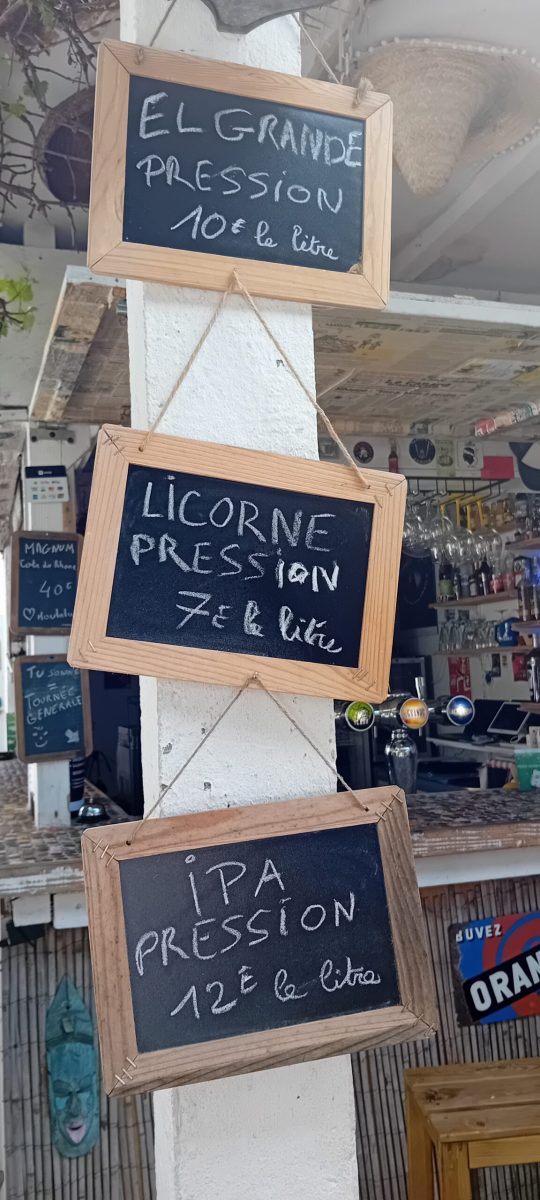 EL GRANDE
PRESSION
10€ le litre
LICORNE
PRESSION
7€ le litre
MAGNUM
Cote du Rhone
40€
TU SONNE
=
TOURNÉE
GENERALE
IPA
PRESSION
12€ le litre
BUVEZ
ORAN